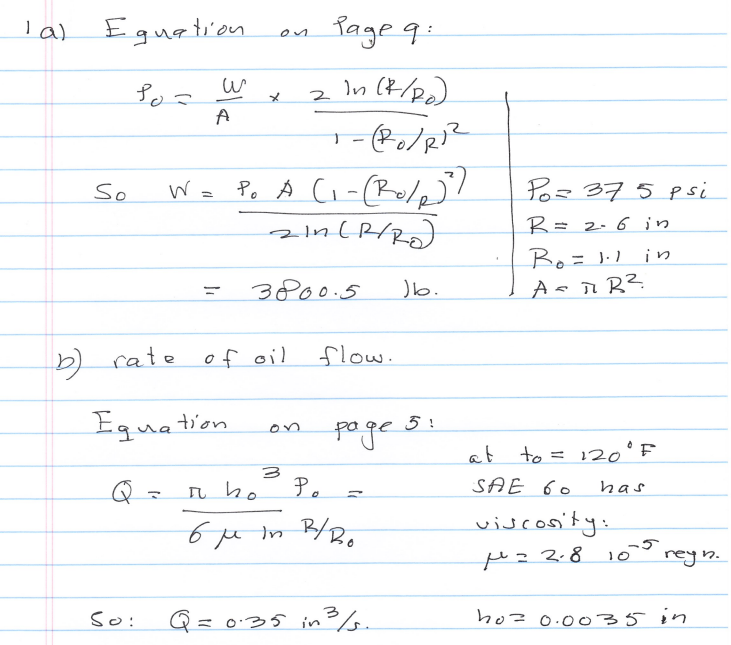 1a) Equation on Page 9:
P₀ = W/A × 2 ln(R/R₀) / 1-(R₀/R)²
So W = P₀ A (1-(R₀/R)²) / 2 ln(R/R₀)
= 3800.5 lb.
P₀ = 375 psi
R = 2.6 in
R₀ = 1.1 in
A = π R².
b) rate of oil flow.
Equation on page 5:
Q = π h₀³ P₀ / 6 μ ln R/R₀ =
at t₀ = 120°F
SAE 60 has
viscosity:
μ = 2.8 10⁻⁵ reyn.
So: Q = 0.35 in³/s.
h₀ = 0.0035 in